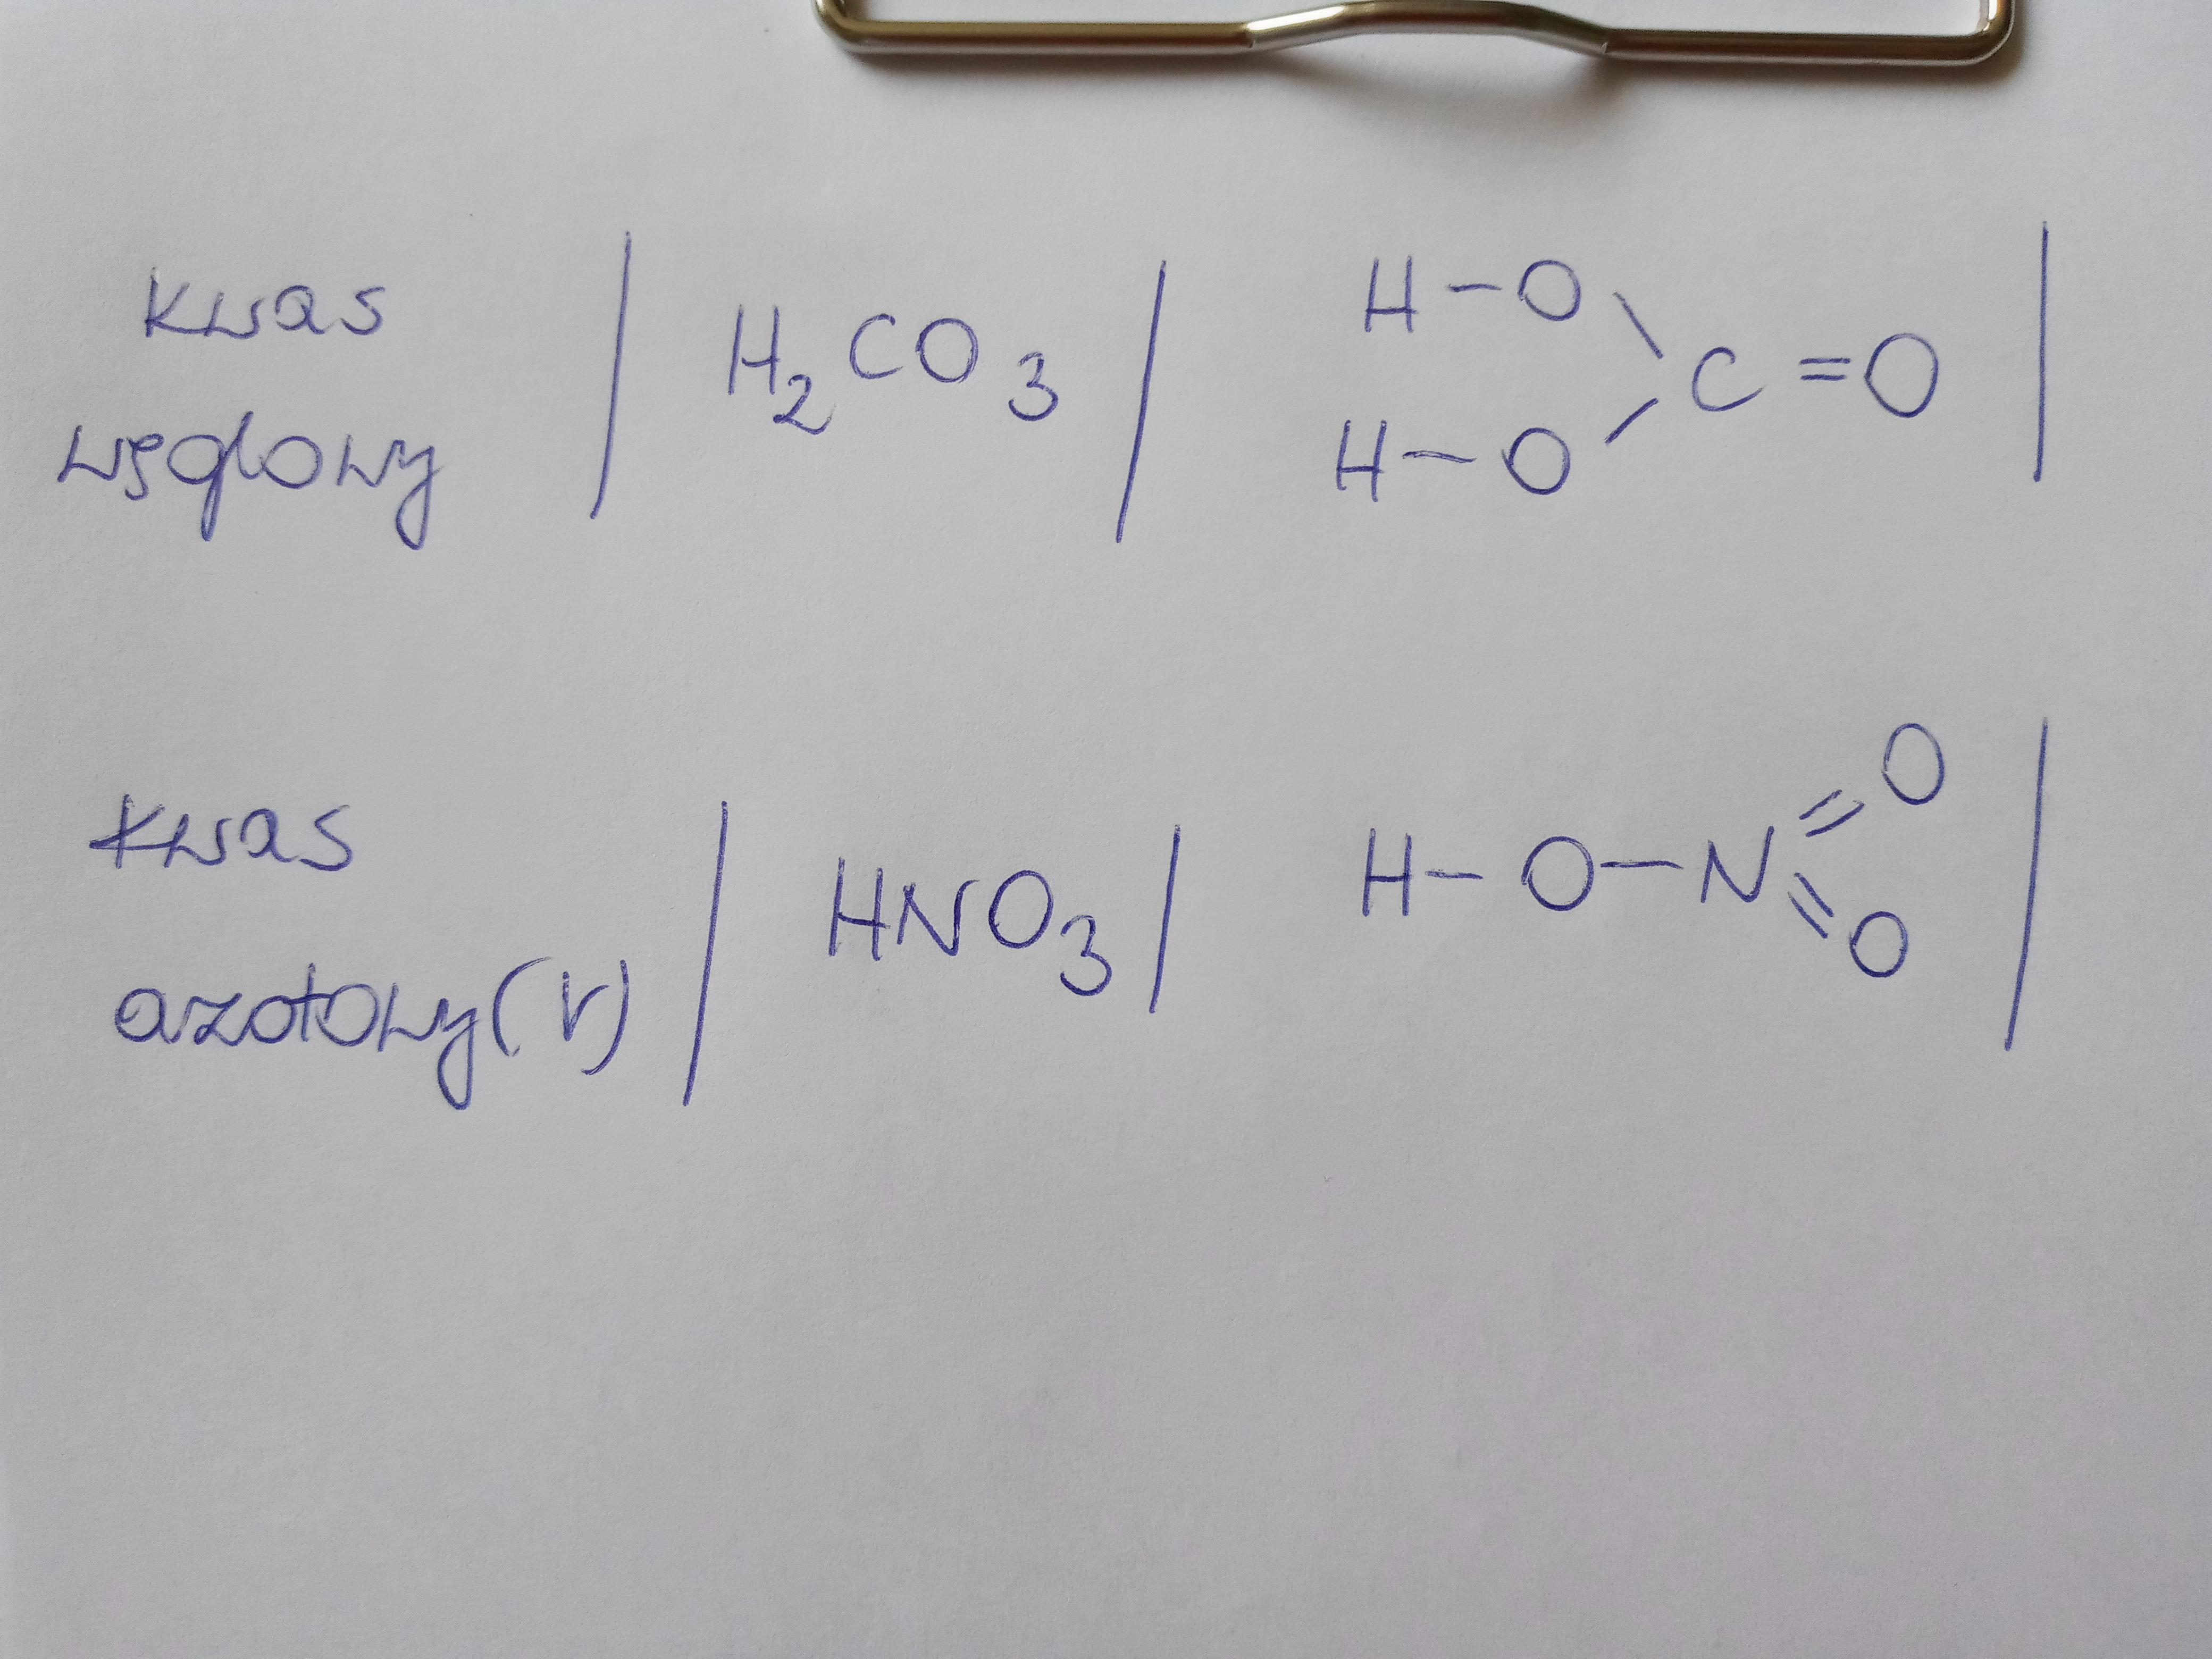 kwas
węglowy | H₂CO₃ | H-O \ C=O |
H-O /
kwas
azotowy(V) | HNO₃ | H-O-N =O |
=O